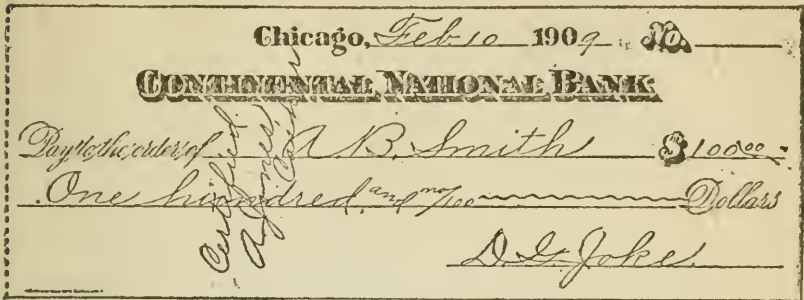 Chicago, Feb 10 1909 No.
CONTINENTAL NATIONAL BANK
Pay to the order of A. B. Smith $100.00
One hundred and no/100 Dollars
D. G. Joke
Certified
A Jones
Cashier